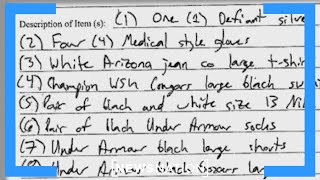 Description of Item (s): (1) One (1) Defiant silve
(2) Four (4) Medical style gloves
(3) White Arizona jean co large t-shir
(4) Champion WSU Cougars large black sw
(5) Pair of black and white size 13 Ni
(6) Pair of black Under Armour socks
(7) Under Armour black large shorts
(8) Under Armour black boxers lar